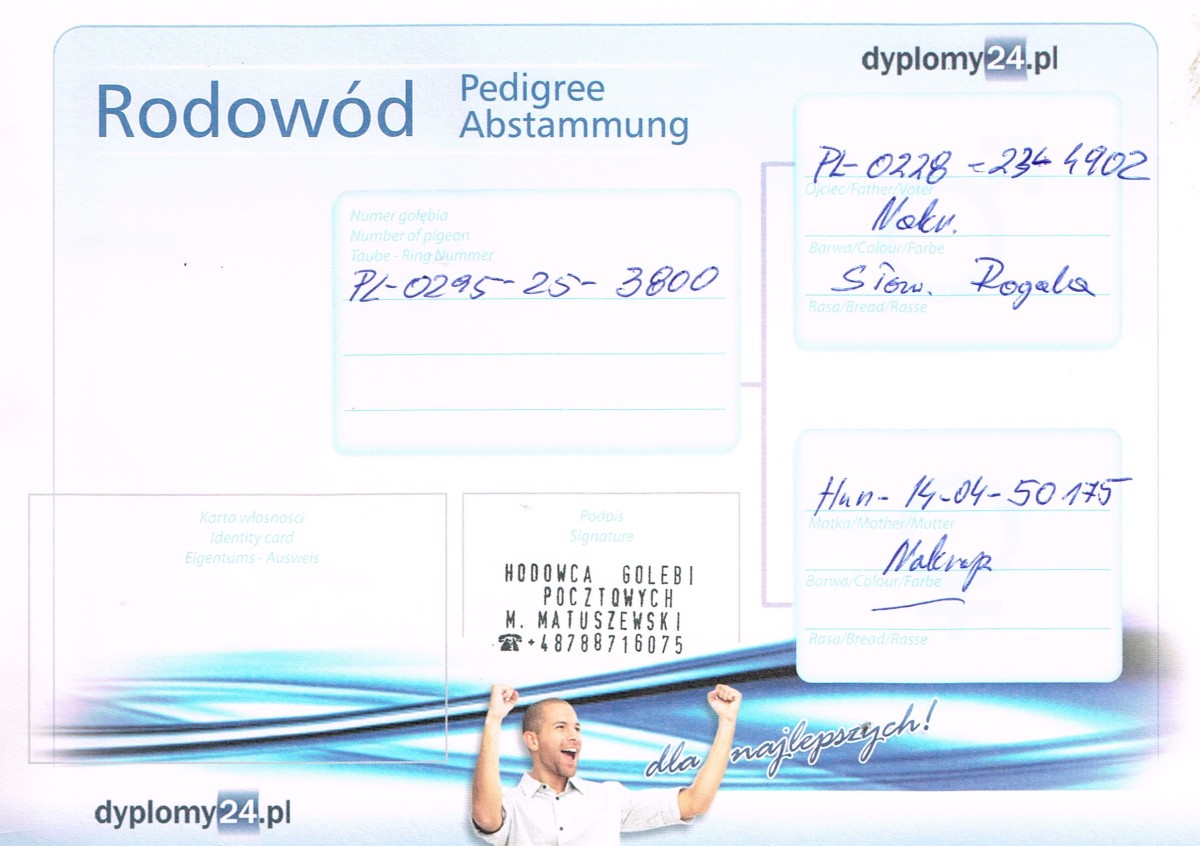 dyplomy24.pl
Rodowód
Pedigree
Abstammung
Numer gołębia
Number of pigeon
Taube - Ring Nummer
PL-0295-25-3800
PL-0228-23-4902
Ojciec/Father/Vater
Nakr.
Barwa/Colour/Farbe
Słow. Rogala
Rasa/Bread/Rasse
Hun-14-04-50175
Matka/Mother/Mutter
Nakrap
Barwa/Colour/Farbe
Rasa/Bread/Rasse
Karta własności
Identity card
Eigentums - Ausweis
Podpis
Signature
HODOWCA GOLEBI
POCZTOWYCH
M. MATUSZEWSKI
☎+48788716075
dla najlepszych!
dyplomy24.pl